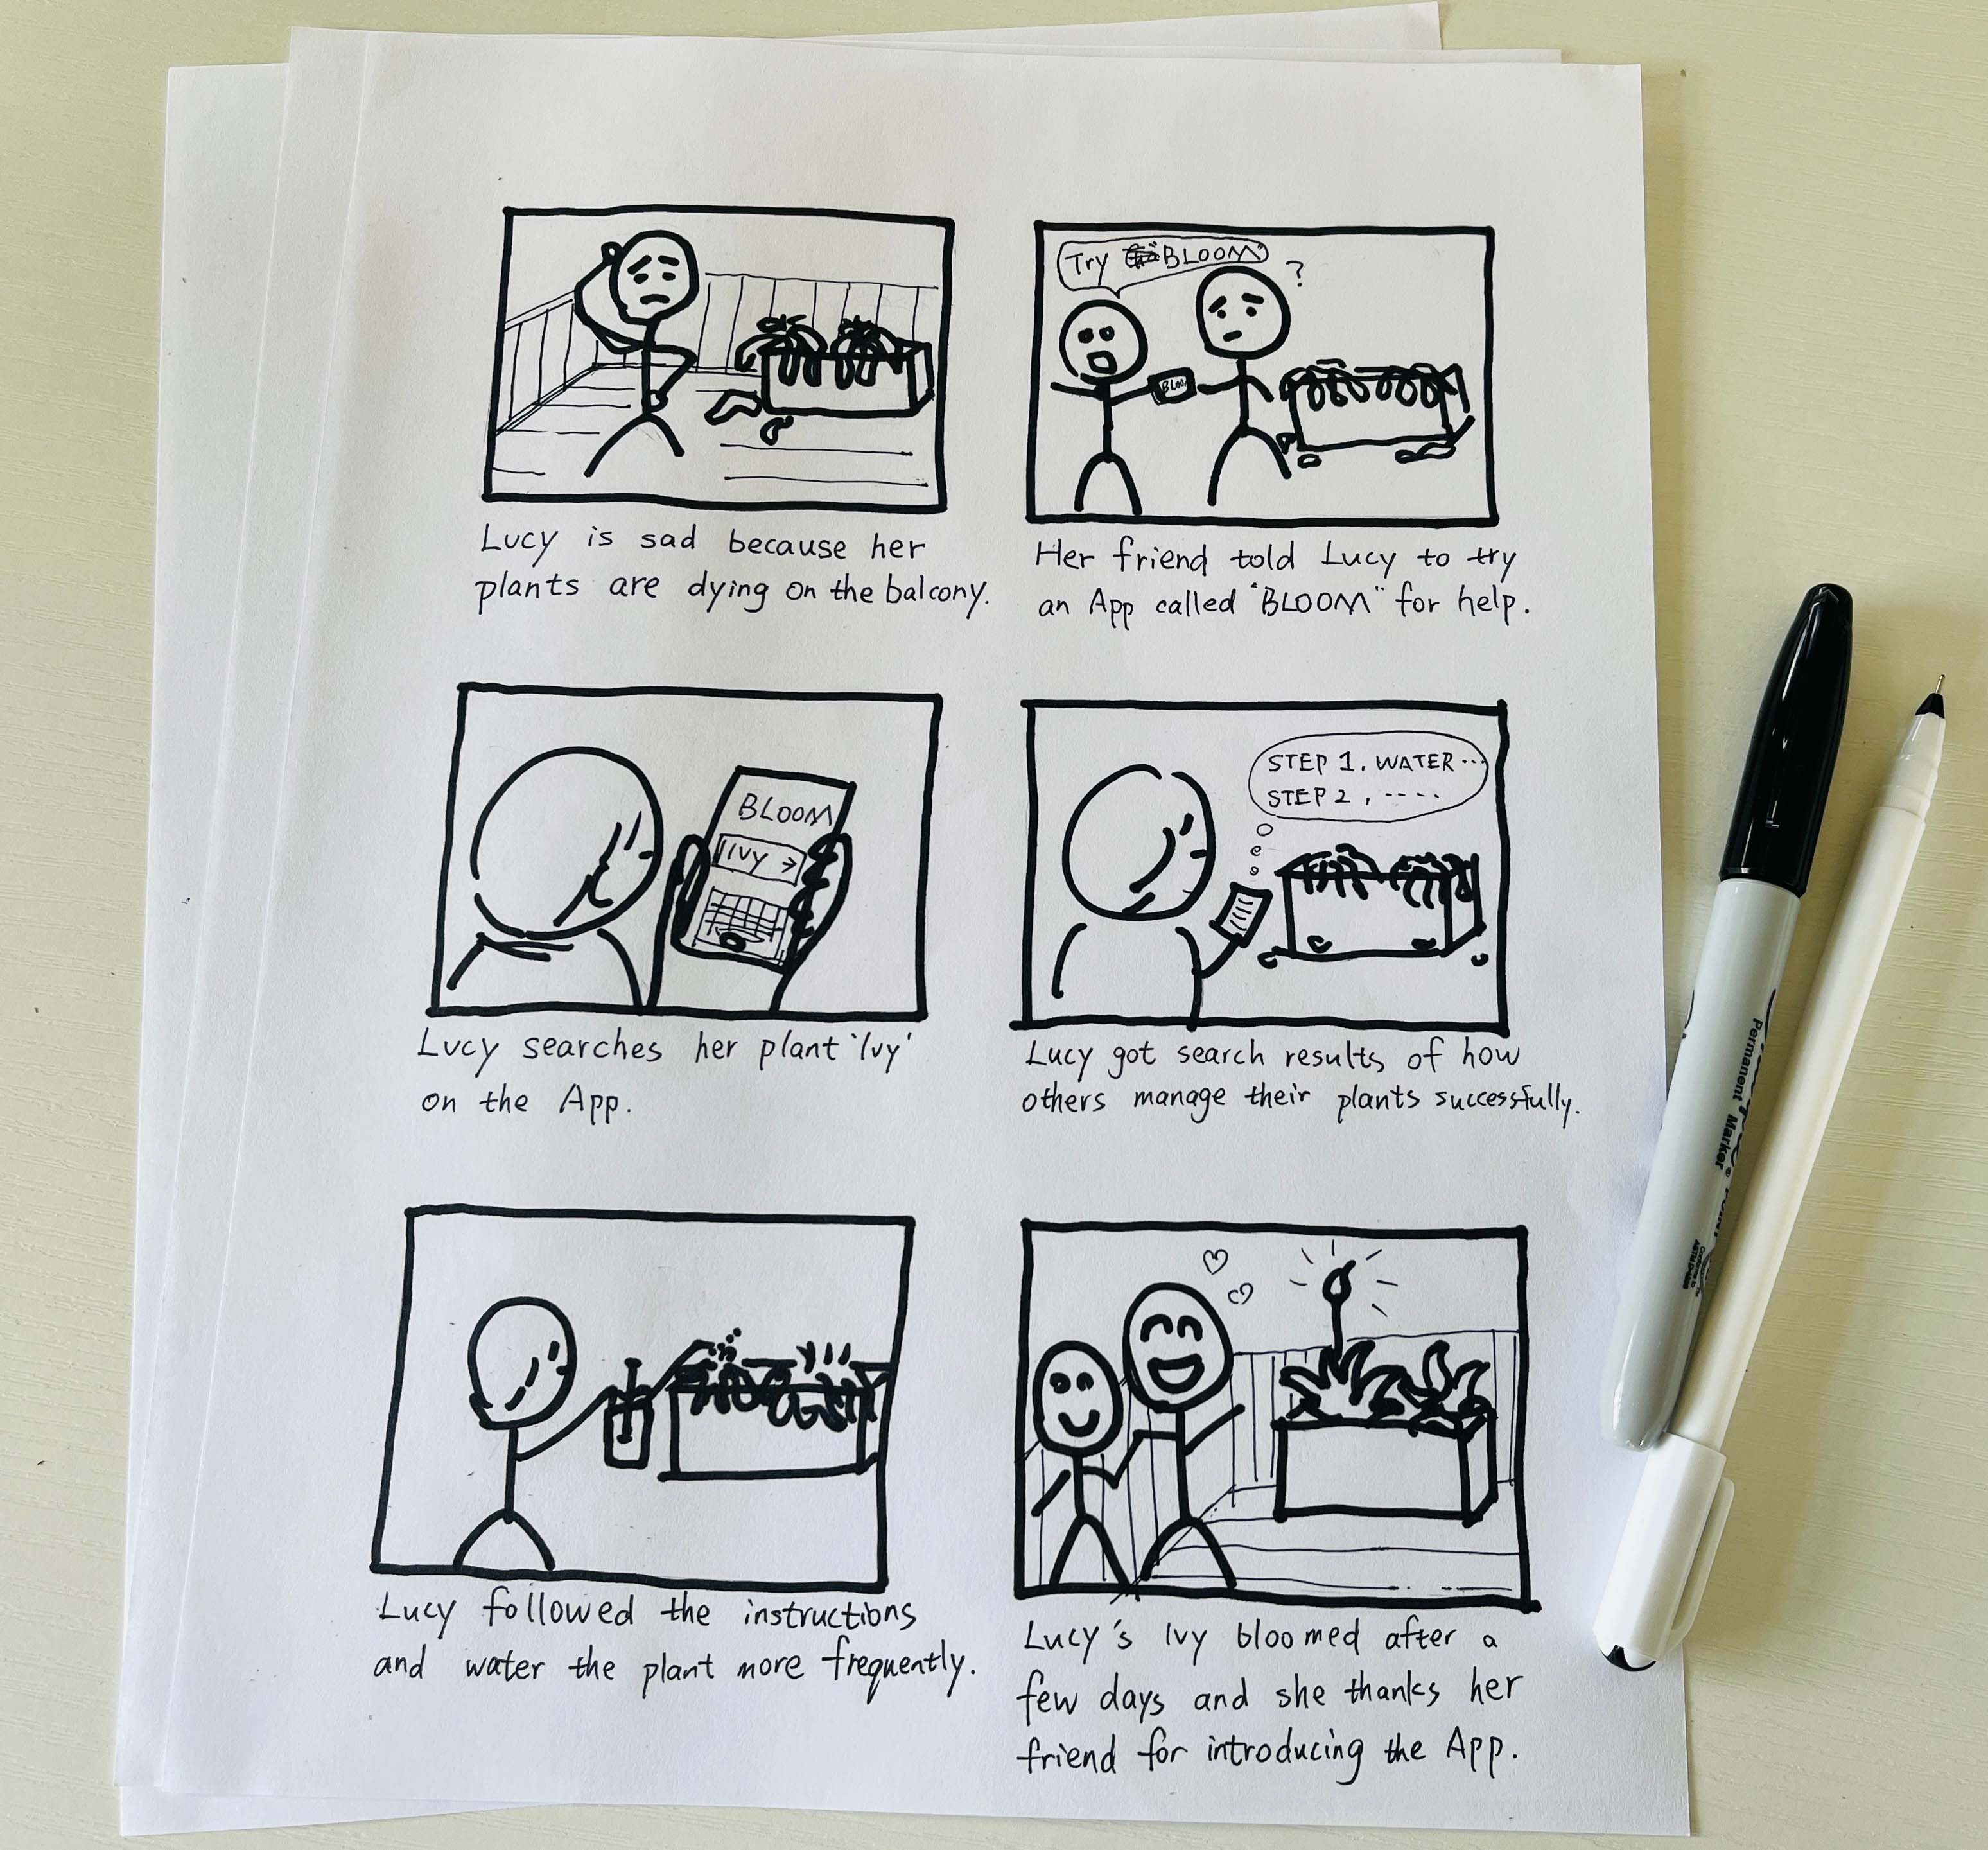 Try "BLOOM"
?
BLOOM
Lucy is sad because her
plants are dying on the balcony.
Her friend told Lucy to try
an App called "BLOOM" for help.
BLOOM
IVY →
Lucy searches her plant 'Ivy'
on the App.
STEP 1. WATER...
STEP 2, ----
Lucy got search results of how
others manage their plants successfully.
Lucy followed the instructions
and water the plant more frequently.
Lucy's Ivy bloomed after a
few days and she thanks her
friend for introducing the App.
Permanent Marker